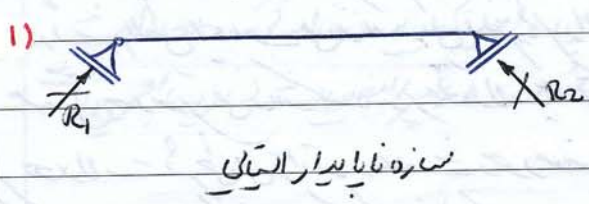 1)
R1 R2
سازه ناپایدار استاتیکی